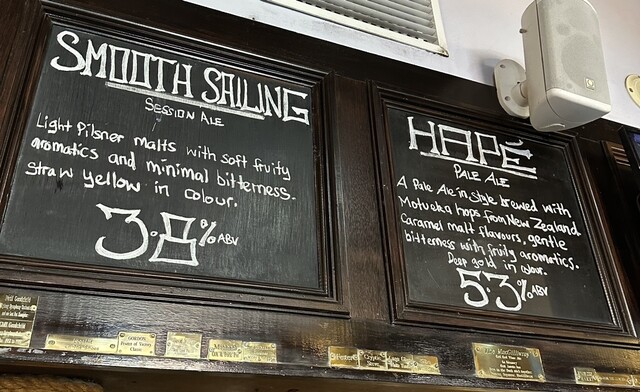 SMOOTH SAILING
SESSION ALE
Light Pilsner malts with soft fruity
aromatics and minimal bitterness.
Straw yellow in colour.
3.8% ABV
HAPE
PALE ALE
A Pale Ale in style brewed with
Motueka hops from New Zealand.
Caramel malt flavours, gentle
bitterness with fruity aromatics.
Deep gold in colour.
5.3% ABV
GORDON